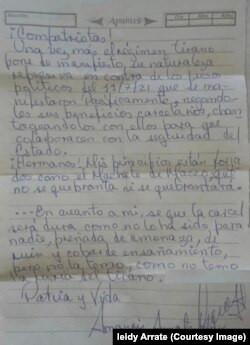 Asunto:
Apuntes
Día Mes Año
¡Compatriotas!
Una vez más el régimen tirano
pone de manifiesto, su naturaleza
represiva en contra de los presos
políticos del 11/7/21 que se ma-
nifestaron pacíficamente, negando-
les sus beneficios carcelarios, chan-
tageandolos con ellos para que
colaboracen con la seguridad del
Estado.
¡Hermanos! Mis principios están forja
dos como el Machete de Maceo, que
no se quebranta ni se quebrantará.
....En cuanto a mi, se que la carcel
será dura como no lo ha sido para
nadie, preñada de amenaza, de
ruin y cobarde ensañamiento,
pero no la temo, como no temo
la furia del tirano.
Patria y Vida
leidy Arrate (Courtesy Image)